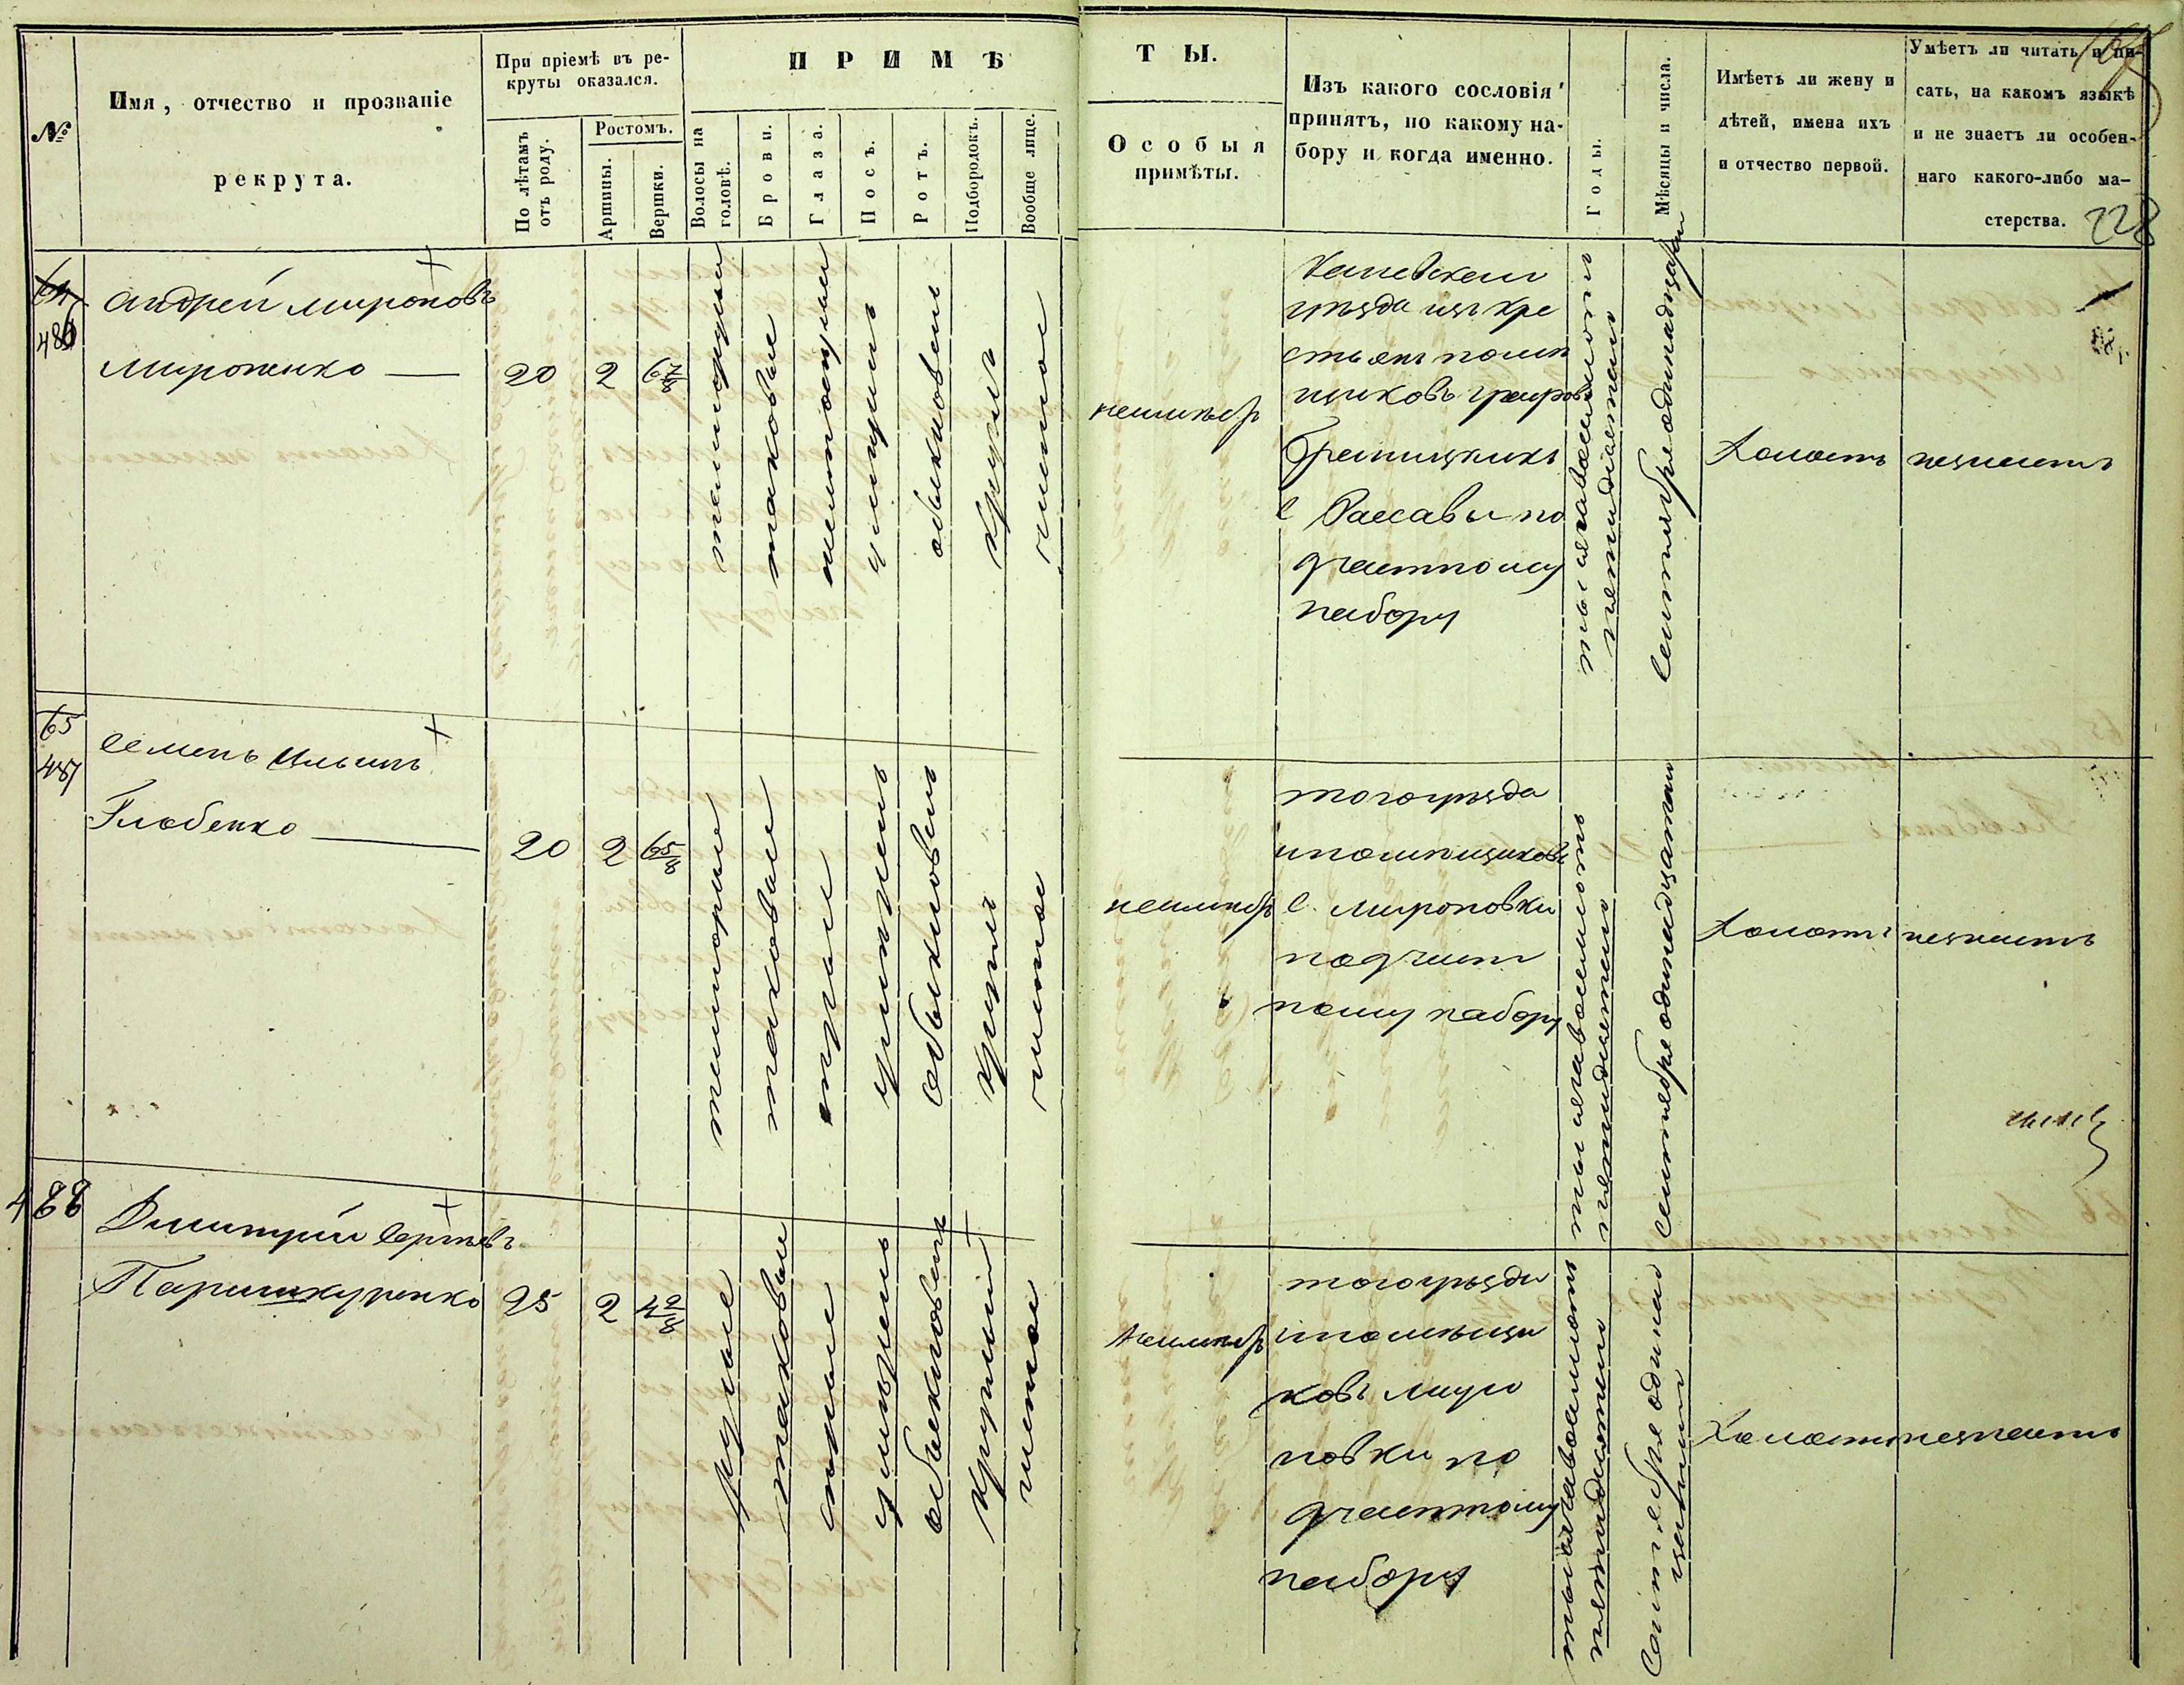 №
Имя, отчество и прозваніе
рекрута.
При пріемѣ въ ре-
круты оказался.
По лѣтамъ
отъ роду.
Ростомъ.
Аршины.
Вершки.
ПРИМѢ
Волосы на
головѣ.
Брови.
Глаза.
Носъ.
Ротъ.
Подбородокъ.
Вообще лице.
ТЫ.
Особыя
примѣты.
Изъ какого сословія
принятъ, по какому на-
бору и когда именно.
Годы.
Мѣсяцы и числа.
Имѣетъ ли жену и
дѣтей, имена ихъ
и отчество первой.
Умѣетъ ли читать и пи-
сать, на какомъ языкѣ
и не знаетъ ли особен-
наго какого-либо ма-
стерства.
228
64
486
Андрей Мироновъ
Мироненко
20
2
6 7/8
темнорусыи
таковые
умѣрѣнъ
обыкновенъ
круглъ
чистое
неимѣетъ
Каневскаго
уѣзда изъ кре
стьянъ помѣ
щиковъ графовъ
Браницкихъ
с Расавы по
частному
набору
тысяча восемьсотъ
пятидесятого
Сентября одинадцатаго
Холостъ
незнаетъ
65
487
Семенъ Ильинъ
Глобенко
20
2
6 5/8
темнорусые
таковые
сѣрые
умѣрѣнъ
обыкновенъ
круглъ
чистое
неимѣетъ
тогоуѣзда
ипомѣщиковъ
с. Мироновки
почаст
ному набору
тысяча восемьсотъ
пятидесятого
сентября одинадцатаго
Холостъ
незнаетъ
488
Дмитрій Сергѣевъ
Паришкуренко
25
2
4 2/8
русые
таковыи
сѣрые
умѣрѣнъ
обыкновенъ
круглый
чистое
неимѣетъ
тогоуѣзда
ипомѣщи
ковъ Миро
новки по
частному
набору
тысяча восемьсотъ
пятидесятого
Сентября одинад
цатого
Холостъ
незнаетъ